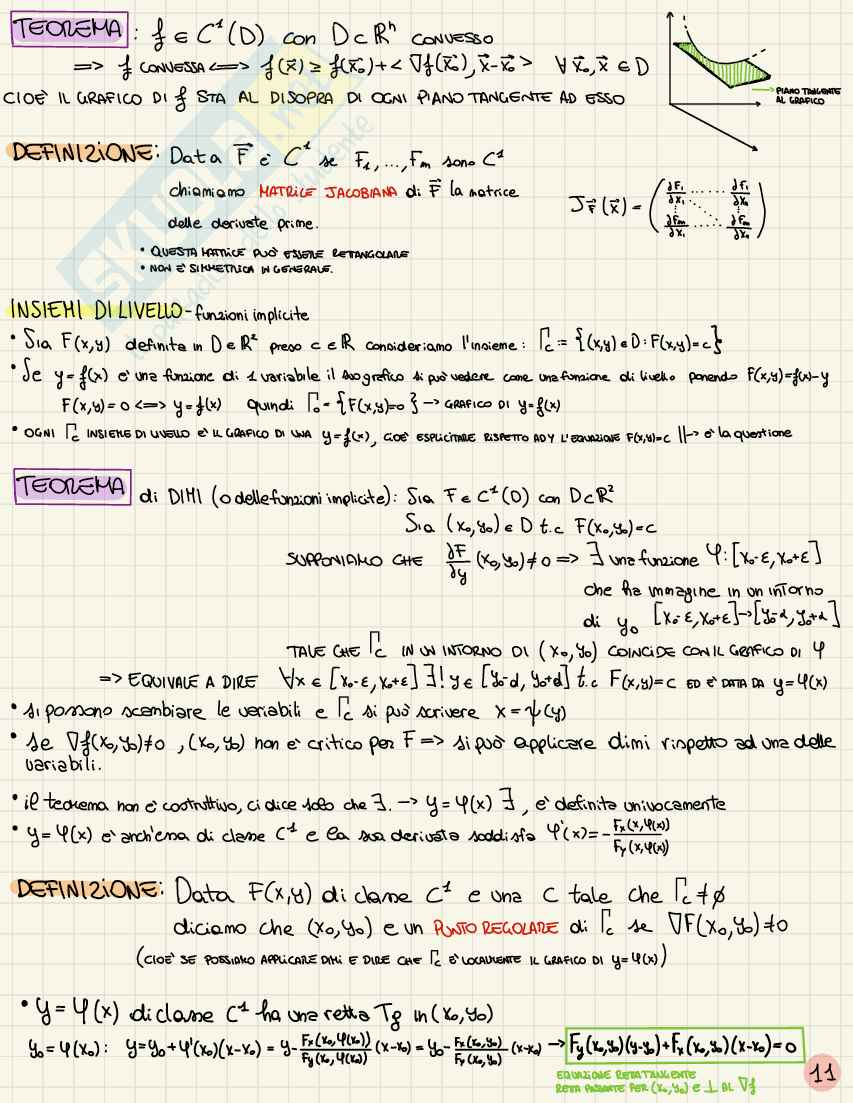 TEOREMA : f ∈ C¹(D) con D⊂ℝⁿ CONVESSO
=> f CONVESSA <=> f(x⃗) ≥ f(x⃗₀)+< ∇f(x⃗₀), x⃗-x⃗₀ > ∀ x⃗₀, x⃗ ∈ D
CIOÈ IL GRAFICO DI f STA AL DISOPRA DI OGNI PIANO TANGENTE AD ESSO
PIANO TANGENTE
AL GRAFICO
DEFINIZIONE: Data F⃗ è C¹ se F₁,...,Fm sono C¹
chiamiamo MATRICE JACOBIANA di F⃗ la matrice
delle derivate prime.
J F⃗ (x⃗) = ( ∂F₁/∂x₁ ...... ∂F₁/∂xₙ
∂Fm/∂x₁ ...... ∂Fm/∂xₙ )
• QUESTA MATRICE PUÒ ESSERE RETTANGOLARE
• NON E' SIMMETRICA IN GENERALE.
INSIEMI DI LIVELLO - funzioni implicite
• Sia F(x,y) definita in D∈ℝ² preso c∈ℝ consideriamo l'insieme : Γc := {(x,y)∈D : F(x,y)=c}
• Se y=f(x) e' una funzione di 1 variabile il suo grafico si può vedere come una funzione di livello ponendo F(x,y)=f(x)-y
F(x,y)=0 <=> y=f(x) quindi Γ₀ = {F(x,y)=0} -> GRAFICO DI y=f(x)
• OGNI Γc INSIEME DI LIVELLO E' IL GRAFICO DI UNA y=f(x), CIOÈ ESPLICITARE RISPETTO AD Y L'EQUAZIONE F(x,y)=c ||-> e' la questione
TEOREMA di DIMI (o delle funzioni implicite): Sia F∈C¹(D) con D⊂ℝ²
Sia (x₀,y₀)∈D t.c F(x₀,y₀)=c
SUPPONIAMO CHE ∂F/∂y (x₀,y₀)≠0 => ∃ una funzione φ: [x₀-ε, x₀+ε]
che ha immagine in un intorno
di y₀ [x₀-ε, x₀+ε]->[y₀-α, y₀+α]
TALE CHE Γc IN UN INTORNO DI (x₀,y₀) COINCIDE CON IL GRAFICO DI φ
=> EQUIVALE A DIRE ∀x∈[x₀-ε, x₀+ε] ∃! y∈[y₀-d, y₀+d] t.c F(x,y)=c ED E' DATA DA y=φ(x)
• si possono scambiare le variabili e Γc si può scrivere x=ψ(y)
• Se ∇f(x₀,y₀)≠0 , (x₀,y₀) non e' critico per F => si può applicare dimi rispetto ad una delle
variabili.
• il teorema non e' costruttivo, ci dice solo che ∃. -> y=φ(x) ∃, e' definita univocamente
• y=φ(x) e' anch'essa di classe C¹ e la sua derivata soddisfa φ'(x)= - Fx(x,φ(x))/Fy(x,φ(x))
DEFINIZIONE: Data F(x,y) di classe C¹ e una c tale che Γc ≠ ∅
diciamo che (x₀,y₀) e un PUNTO REGOLARE di Γc se ∇F(x₀,y₀)≠0
(CIOÈ SE POSSIAMO APPLICARE DIMI E DIRE CHE Γc E' LOCALMENTE IL GRAFICO DI y=φ(x))
• y=φ(x) di classe C¹ ha una retta Tg in (x₀,y₀)
y₀=φ(x₀): y=y₀+φ'(x₀)(x-x₀) = y- Fx(x₀,φ(x₀))/Fy(x₀,φ(x₀)) (x-x₀) = y₀- Fx(x₀,y₀)/Fy(x₀,y₀) (x-x₀) -> Fy(x₀,y₀)(y-y₀)+Fx(x₀,y₀)(x-x₀)=0
EQUAZIONE RETTA TANGENTE
RETTA PASSANTE PER (x₀,y₀) e ⊥ AL ∇f
11